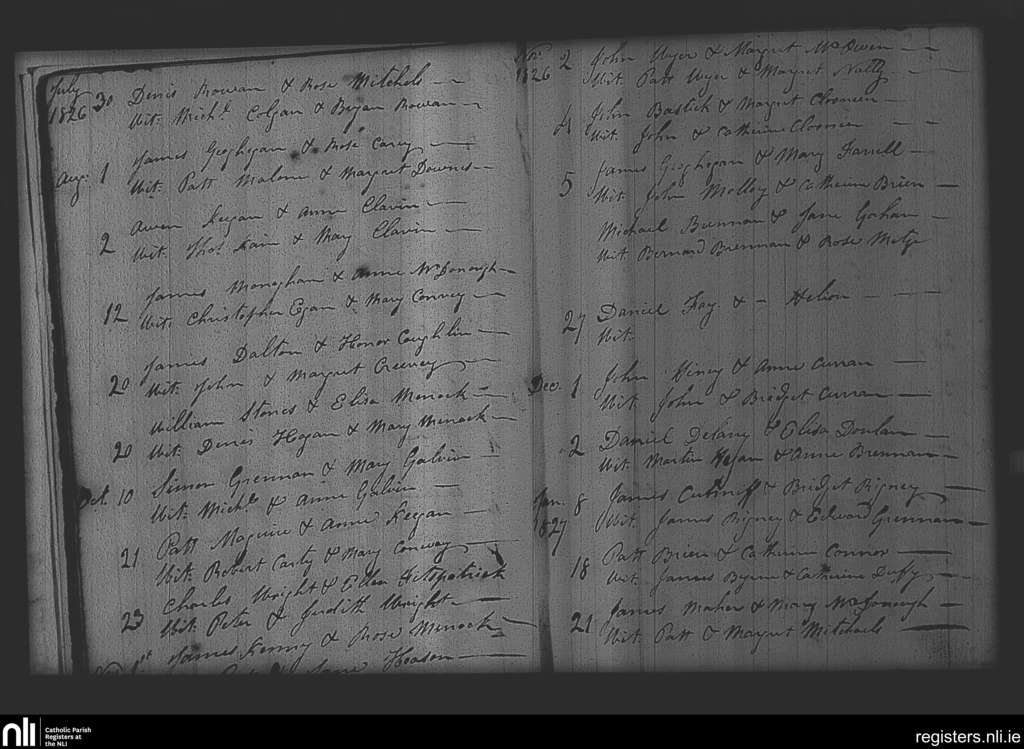 July
1826 30 Denis Rowan & Rose Mitchels
Wit: Michl. Colgan & Bryan Rowan
Aug: 1 James Geoghegan & Rose Carey
Wit: Patt Malone & Margret Downes
2 Awen Keegan & Anne Clavin
Wit: Thos. Kain & Mary Clavin
12 James Monaghan & Anne McDonough
Wit: Christopher Egan & Mary Conrey
20 James Dalton & Honor Coughlin
Wit: John & Margret Creevey
20 William Stones & Elisa Menock
Wit: Denis Hogan & Mary Menock
Oct. 10 Simon Grennan & Mary Galvin
Wit: Michl. & Anne Galvin
21 Patt Maguire & Anne Keegan
Wit: Robert Carty & Mary Conway
23 Charles Wright & Ellen Fitspatrick
Wit: Peter & Judith Wright
1st James Kenny & Rose Menock
Hoason
Nov.
1826 2 John Wyer & Margret McOwen
Wit. Patt Wyer & Margret Nally
4 John Bastick & Margret Clooneen
Wit. John & Catherine Clooneen
5 James Geoghegan & Mary Farrell
Wit. John Molloy & Catherine Brien
Michael Brennan & Jane Gahan
Wit. Bernard Brennan & Rose
27 Daniel Fay & - Helion
Wit.
Dec. 1 John Hiney & Anne Curran
Wit. John & Bridget Curran
2 Daniel Delany & Elisa Doolan
Wit. Martin Hogan & Anne Brennan
Jan. 8 James & Bridget Rigney
1827 Wit. James Rigney & Edward Grennan
18 Patt Brien & Catherine Connor
Wit. James Byrne & Catherine Duffy
21 James Maher & Mary McDonough
Wit. Patt & Margret Mitchels
nli Catholic Parish
Registers at
the NLI
registers.nli.ie